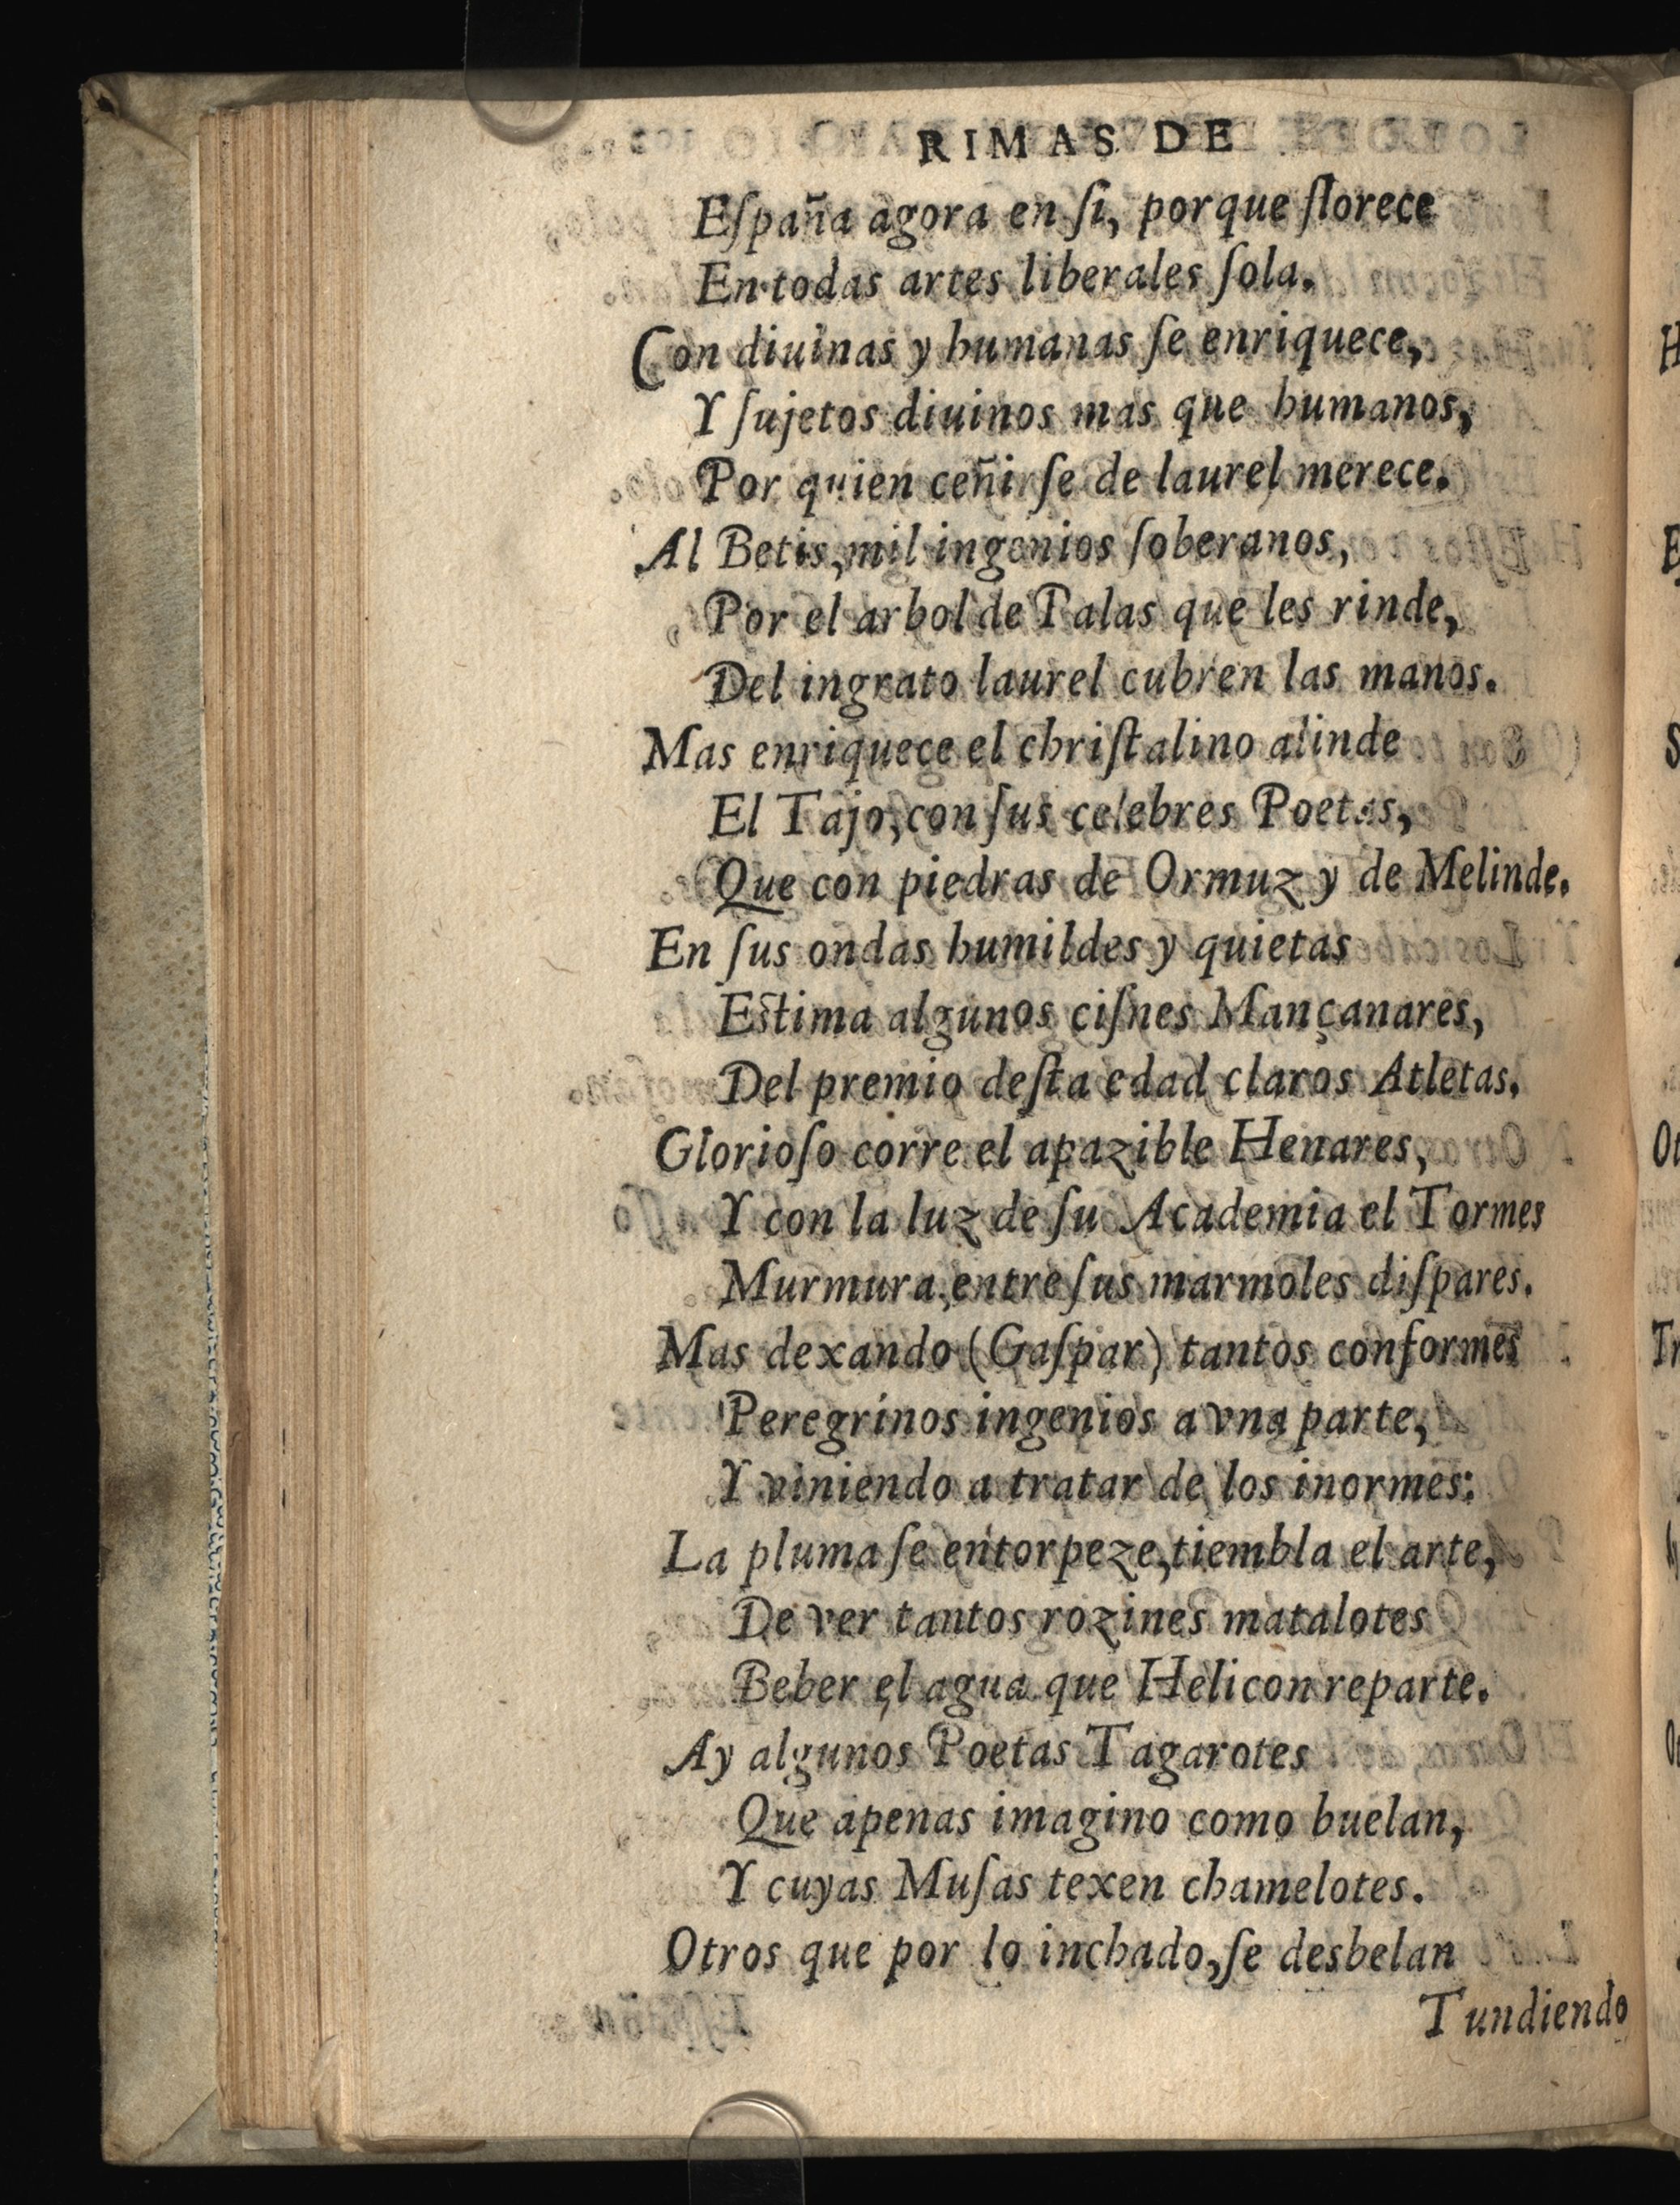 RIMAS DE
Eſpaña agora en ſi, porque florece
En todas artes liberales ſola.
Con diuinas y humanas ſe enriquece,
Y ſujetos diuinos mas que humanos,
Por quien ceñirſe de laurel merece.
Al Betis, mil ingenios ſoberanos,
Por el arbol de Palas que les rinde,
Del ingrato laurel cubren las manos.
Mas enriquece el chriſtalino alinde
El Tajo, con ſus celebres Poetas,
Que con piedras de Ormuz y de Melinde.
En ſus ondas humildes y quietas
Eſtima algunos ciſnes Mançanares,
Del premio deſta edad claros Atletas.
Glorioſo corre el apazible Henares,
Y con la luz de ſu Academia el Tormes
Murmura, entre ſus marmoles diſpares.
Mas dexando (Gaſpar) tantos conformes
Peregrinos ingenios a vna parte,
Y viniendo a tratar de los inormes:
La pluma ſe entorpeze, tiembla el arte,
De ver tantos rozines matalotes
Beber el agua que Helicon reparte.
Ay algunos Poetas Tagarotes
Que apenas imagino como buelan,
Y cuyas Muſas texen chamelotes.
Otros que por lo inchado, ſe desbelan
Tundiendo